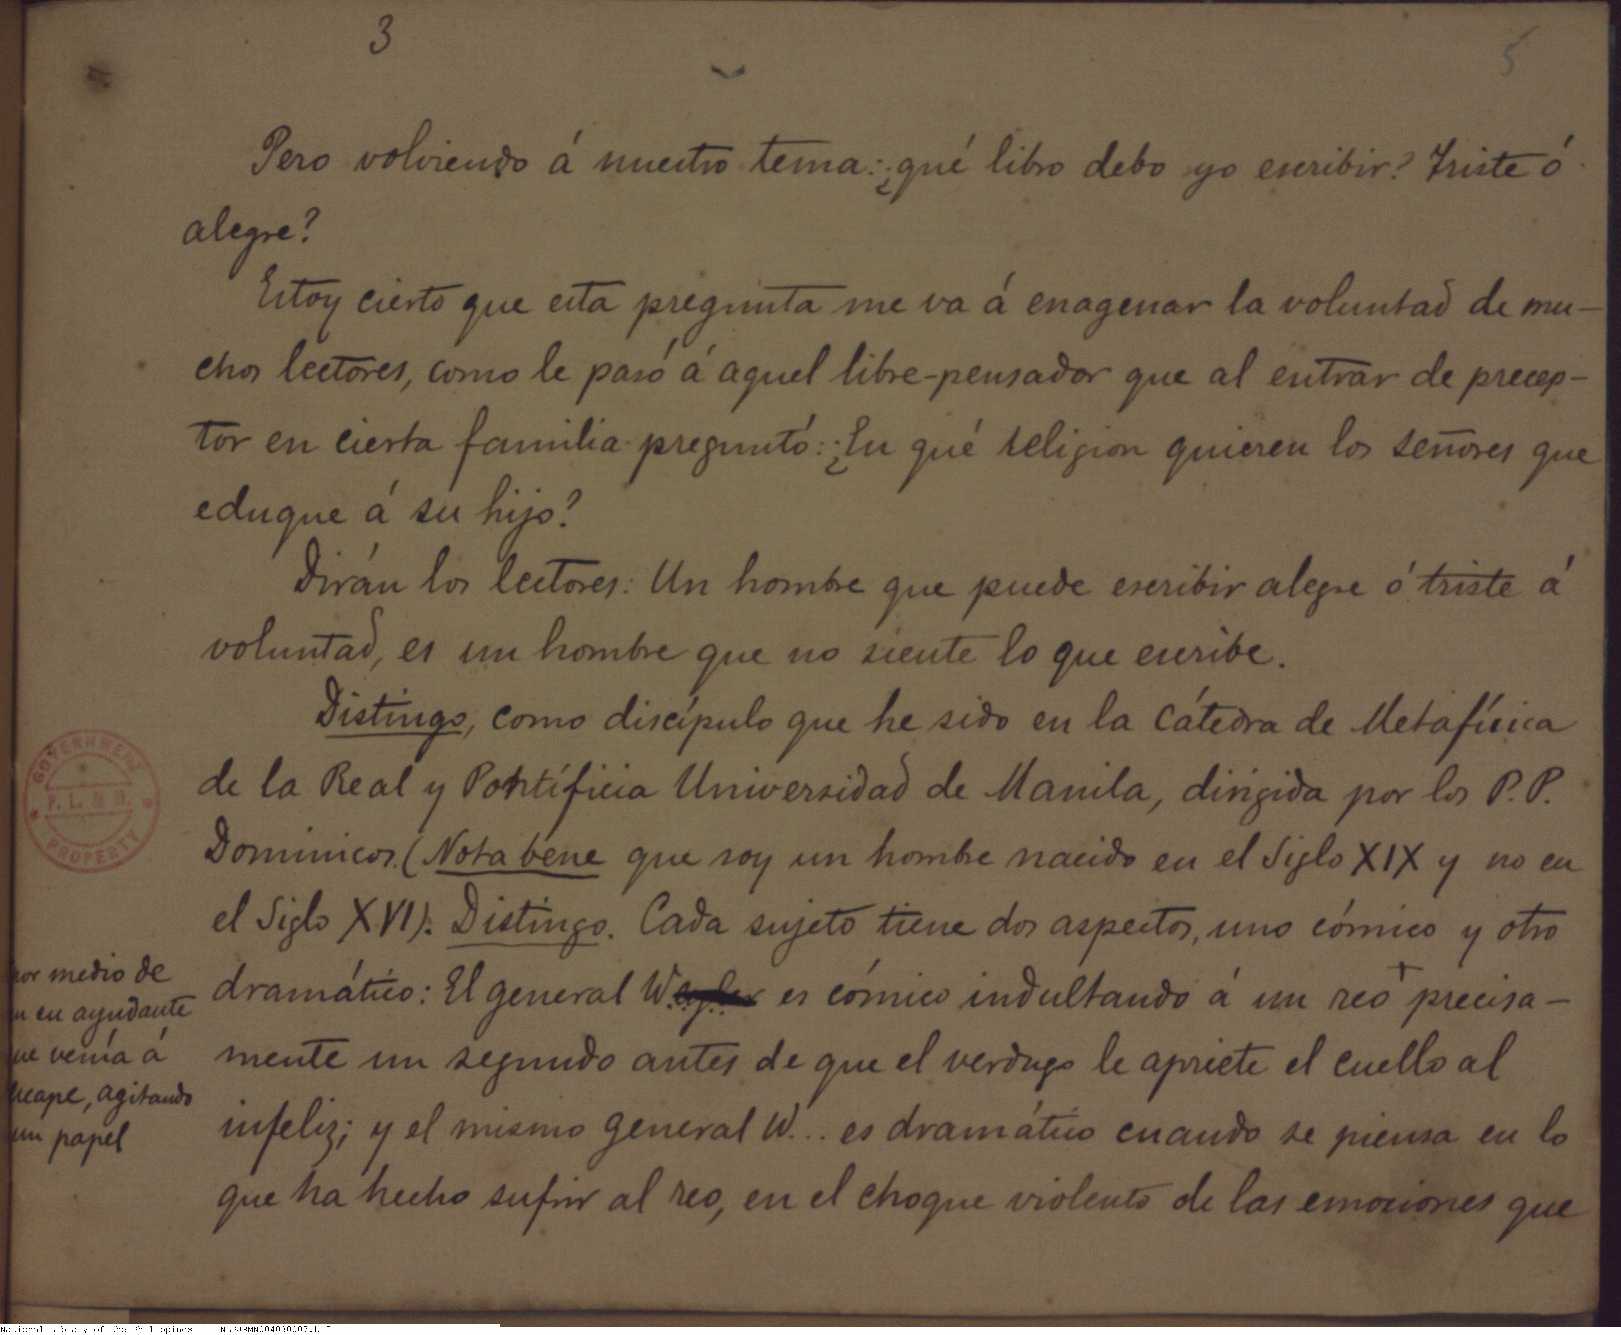 3
5
Pero volviendo á nuestro tema: ¿qué libro debo yo escribir? Triste ó
alegre?
Estoy cierto que esta pregunta me va á enagenar la voluntad de mu-
chos lectores, como le pasó á aquel libre-pensador que al entrar de precep-
tor en cierta familia preguntó: ¿En qué religion quieren los señores que
eduque á su hijo?
Dirán los lectores: Un hombre que puede escribir alegre ó triste á
voluntad, es un hombre que no siente lo que escribe.
Distingo, como discípulo que he sido en la Cátedra de Metafísica
de la Real y Pontíficia Universidad de Manila, dirigida por los P.P.
Dominicos. (Nota bene que soy un hombre nacido en el Siglo XIX y no en
el Siglo XVI): Distingo. Cada sujeto tiene dos aspectos, uno cómico y otro
dramático: El general Weyler es cómico indultando á un reo + precisa-
mente un segundo antes de que el verdugo le apriete el cuello al
infeliz; y el mismo general W... es dramático cuando se piensa en lo
que ha hecho sufrir al reo, en el choque violento de las emociones que
por medio de
un ayudante
que venía á
escape, agitando
un papel
GOVERNMENT
P. L. & M.
PROPERTY
National Library of the Philippines